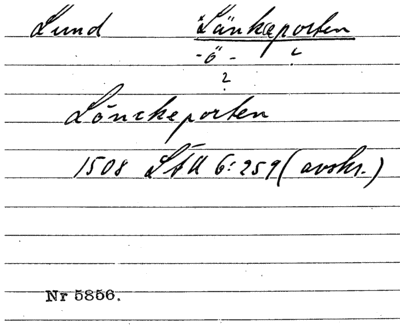 Lund *Länkeporten
-ö- ?
?
Lönckeporten
1508 LÄU 6:259 (avskr.)
Nr 5856.